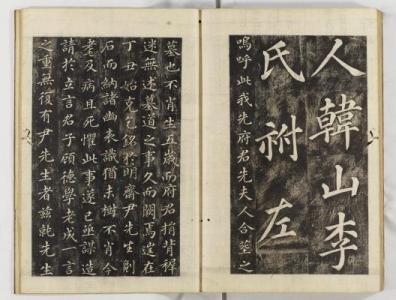 人韓山李
氏祔左
嗚呼此我先府君先夫人合塋之
墓也不肖生五歲而府君捐背稺
迷無述襲道之事久而闕焉遑在
丁丑始克乞銘於明齋尹先生劚
石而納諸幽表識猶未樹不肖今
老及病且死懼此事遂已亟謀造
請於立言君子顧德學老成一言
之重無復有尹先生者玆乾先生